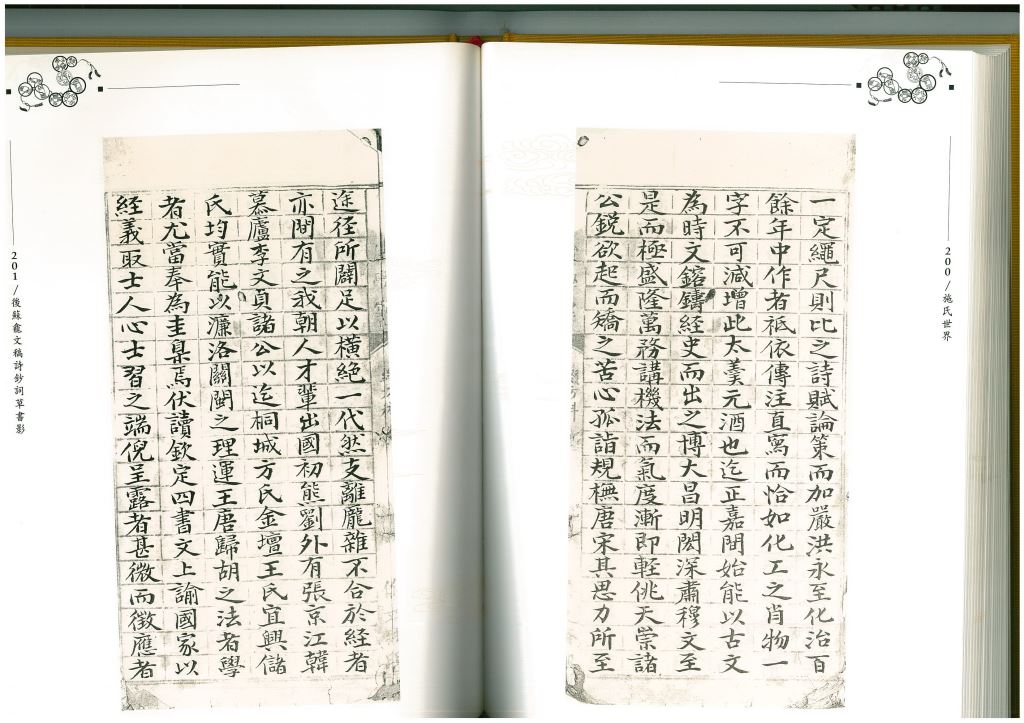 200/施氏世界
一定繩尺則比之詩賦論策而加嚴洪永至化治百
餘年中作者祗依傳注直寫而恰如化工之肖物一
字不可減增此太羹元酒也迄正嘉間始能以古文
為時文鎔鑄經史而出之博大昌明閎深肅穆文至
是而極盛隆萬務講機法而氣度漸即軽佻天崇諸
公銳欲起而矯之苦心孤詣規橅唐宋其思力所至
途径所闢足以橫絕一代然支離龐雜不合於経者
亦間有之我朝人才輩出國初熊劉外有張京江韓
慕廬李文貞諸公以迄桐城方氏金壇王氏宜興儲
氏均實能以濂洛關閩之理運王唐歸胡之法者學
者尤當奉為圭臬焉伏讀欽定四書文上諭國家以
経義取士人心士習之端倪呈露者甚微而徵應者
201/後蘇龕文稿詩鈔詞草書影